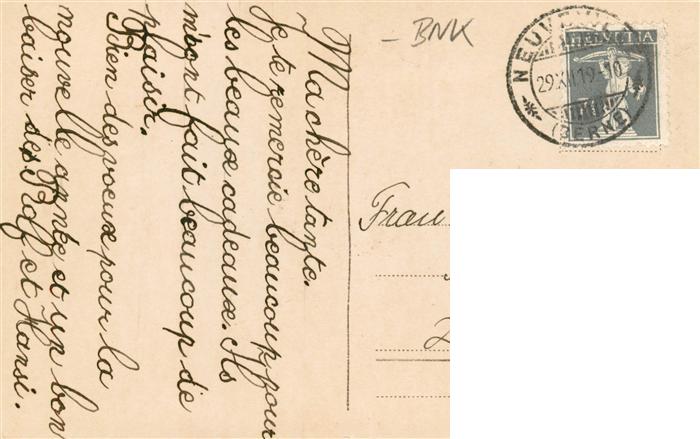 Ma chère tante.
Je te remercie beaucoup pour
tes beaux cadeaux. Ils
m'ont fait beaucoup de
plaisir.
Bien des voeux pour la
nouvelle année et un bon
baiser des Rolf et Hansi.
- BNK
HELVETIA
29.XII.19-10
(BERNE)
Frau